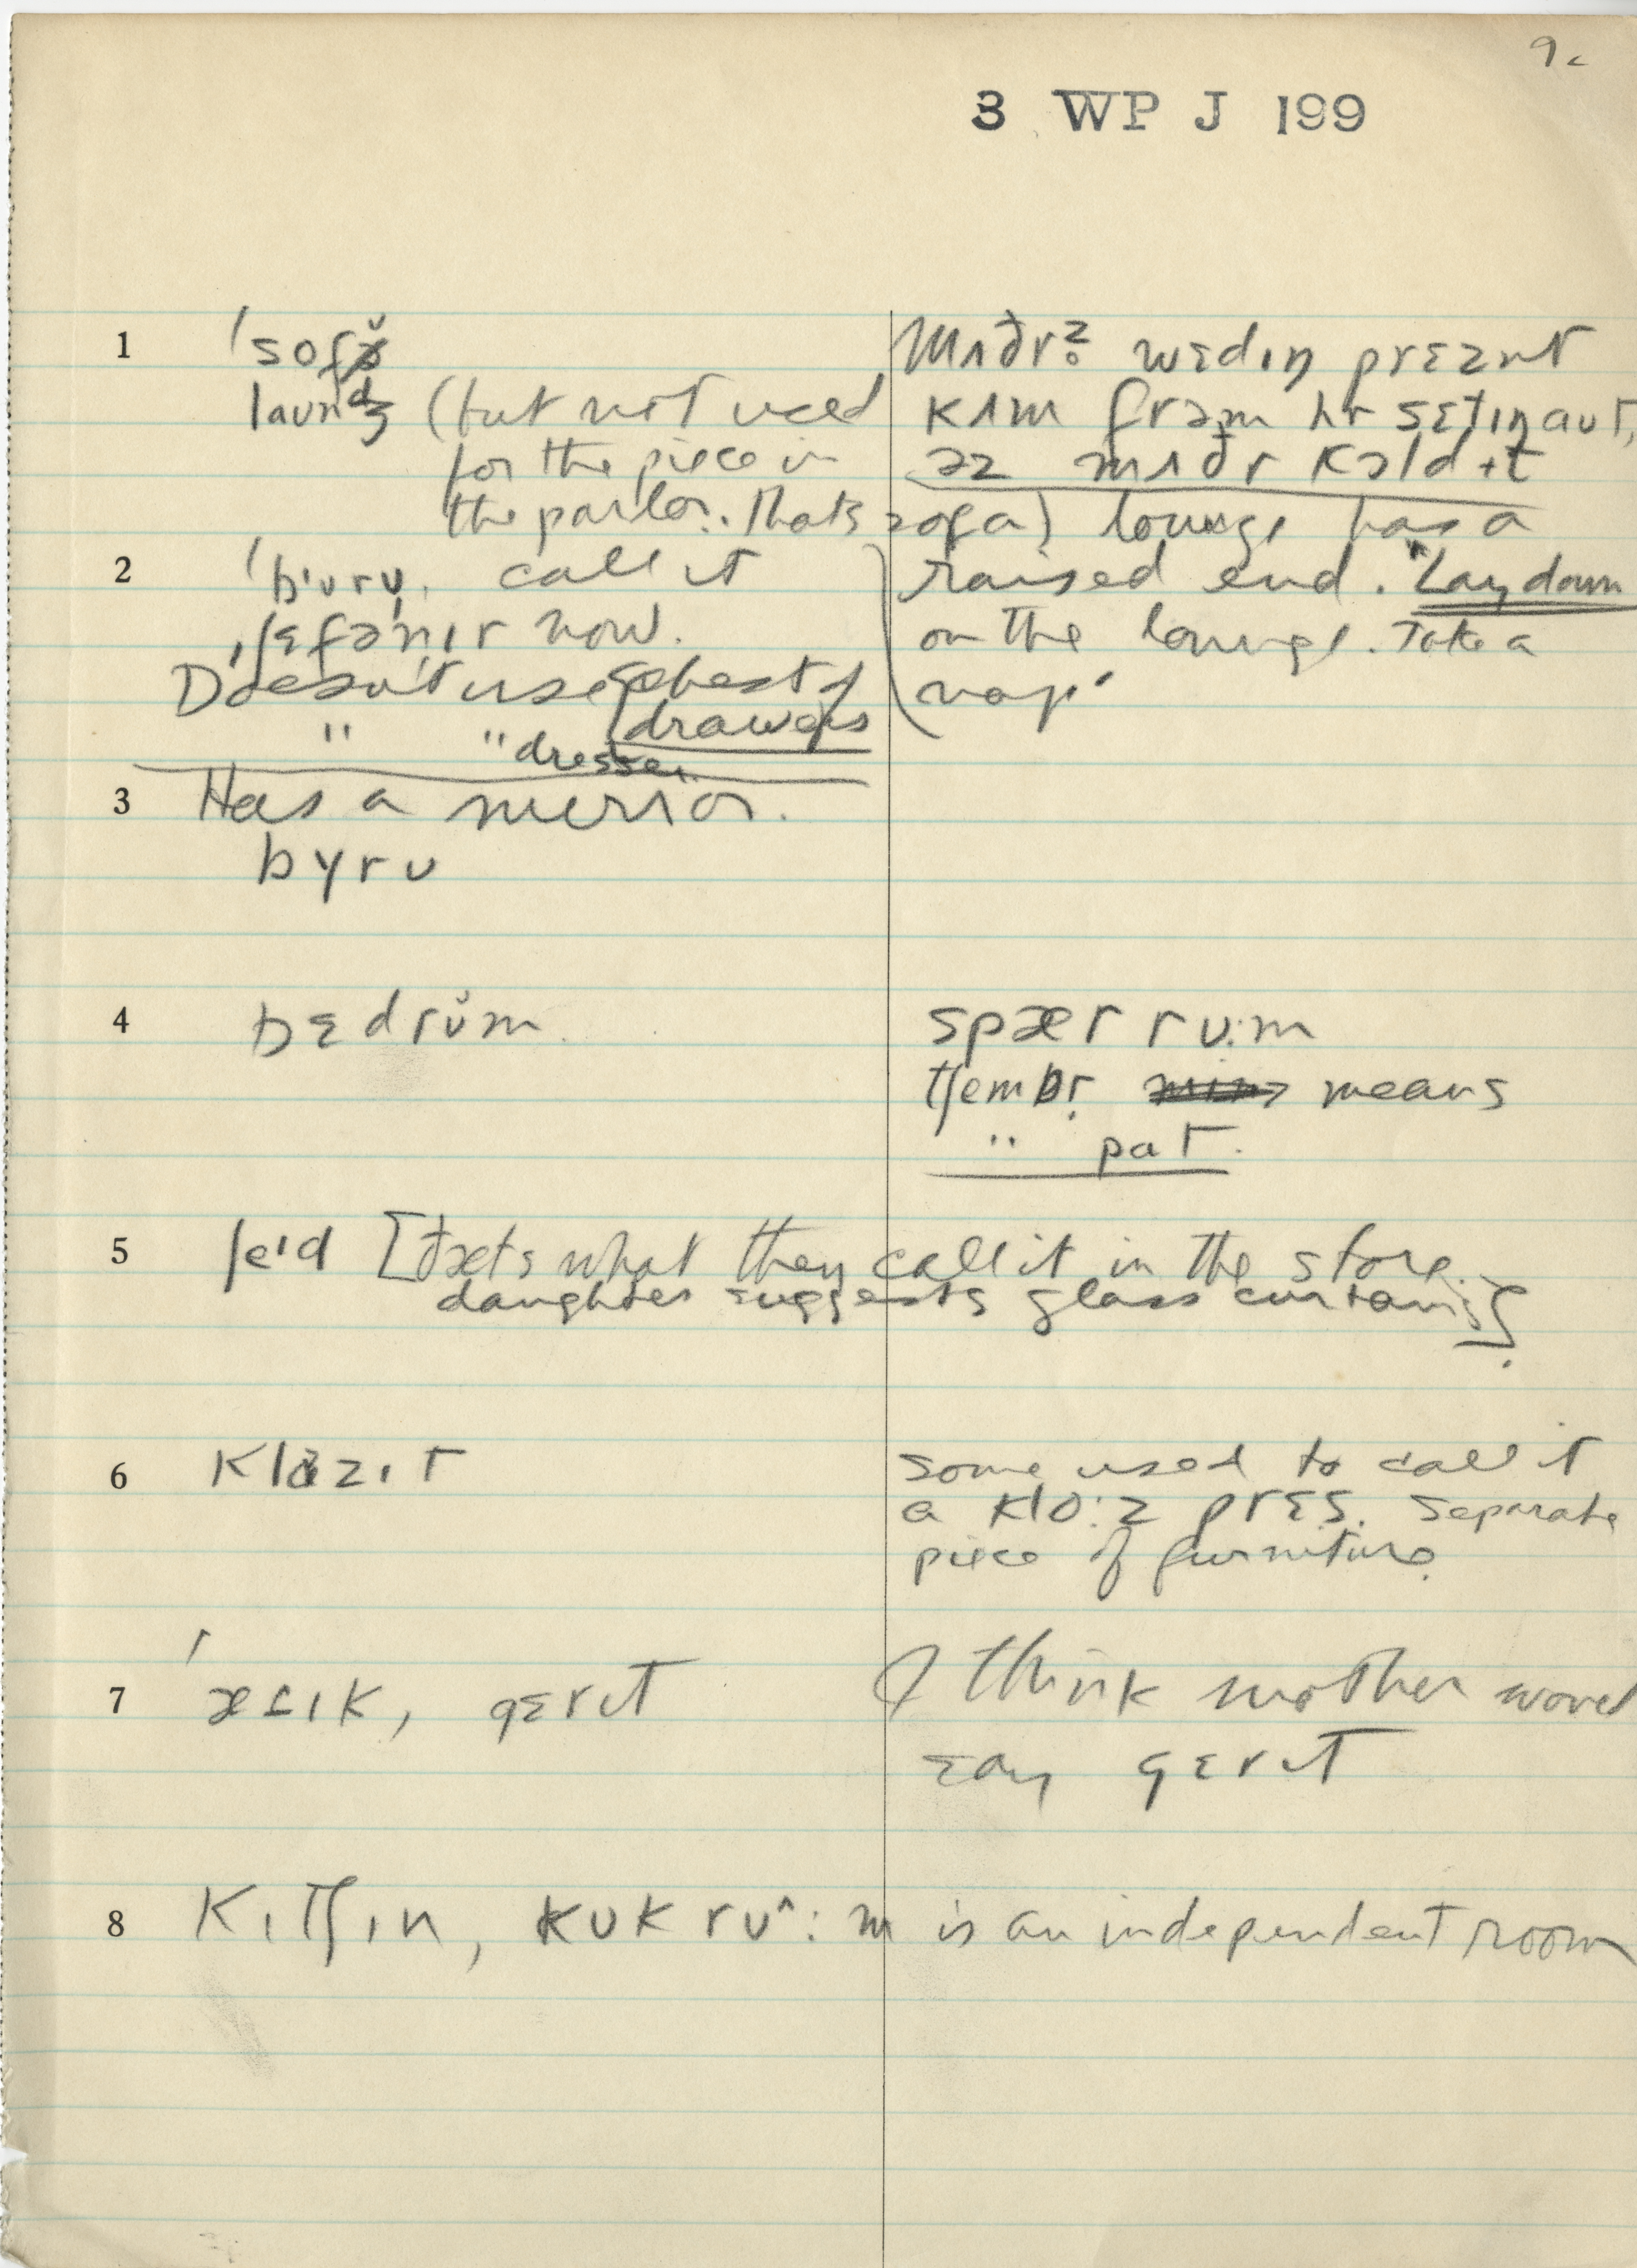 9c
3 WP J 199
1 ˈsofə̆
laundʒ (but not used
for the piece in
the parlor. That's sofa) lounge has a
raised end. "Lay down
on the lounge. Take a
nap"
mʌðrz wɛdɪŋ prɛznt
kʌm frəm hr sɛtɪŋaut,
əz mʌðr kɔld ɪt
2 call it
ˌʃɛfəˈnɪr now.
Doesn't use chest of
drawers
" " dresser
3 Has a mirror.
byrʊ
4 bɛdrʊ̆m
spær rʊ:m
tʃembr means
" pat.
5 ʃeɪd [ðæts what they call it in the store.
daughter suggests glass curtains]
6 klazɪt
some used to call it
a klo:z prɛs. Separate
piece of furniture.
7 ˈætɪk, gɛrɪt
I think mother would
say gɛrɪt
8 kɪtʃɪn, kʊk rʊ^:m is an independent room